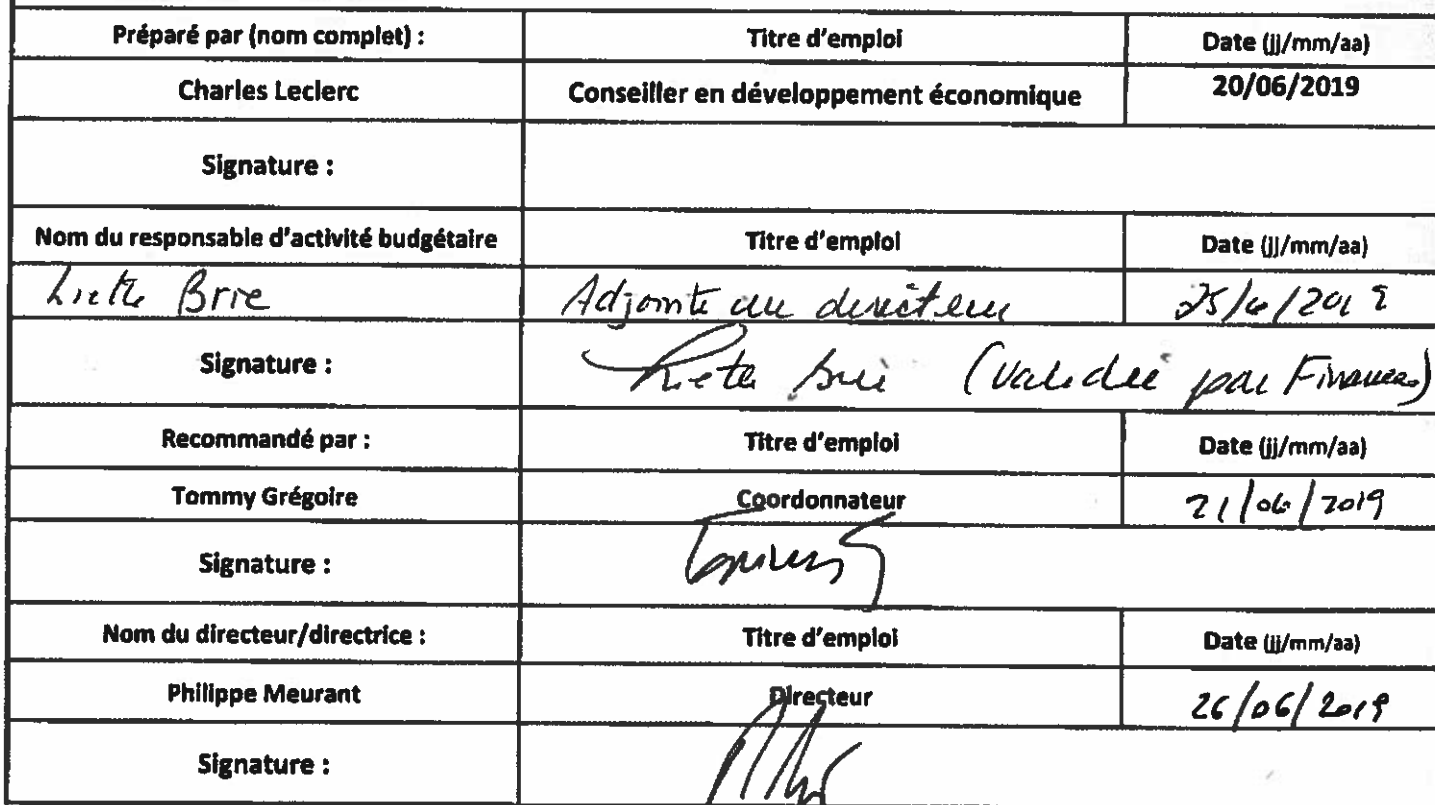 Préparé par (nom complet) : Titre d'emploi Date (jj/mm/aa)
Charles Leclerc Conseiller en développement économique 20/06/2019
Signature :
Nom du responsable d'activité budgétaire Titre d'emploi Date (jj/mm/aa)
Brie Adjointe au directeur 25/6/2019
Signature : (validée par Finances)
Recommandé par : Titre d'emploi Date (jj/mm/aa)
Tommy Grégoire Coordonnateur 21/06/2019
Signature :
Nom du directeur/directrice : Titre d'emploi Date (jj/mm/aa)
Philippe Meurant Directeur 26/06/2019
Signature :